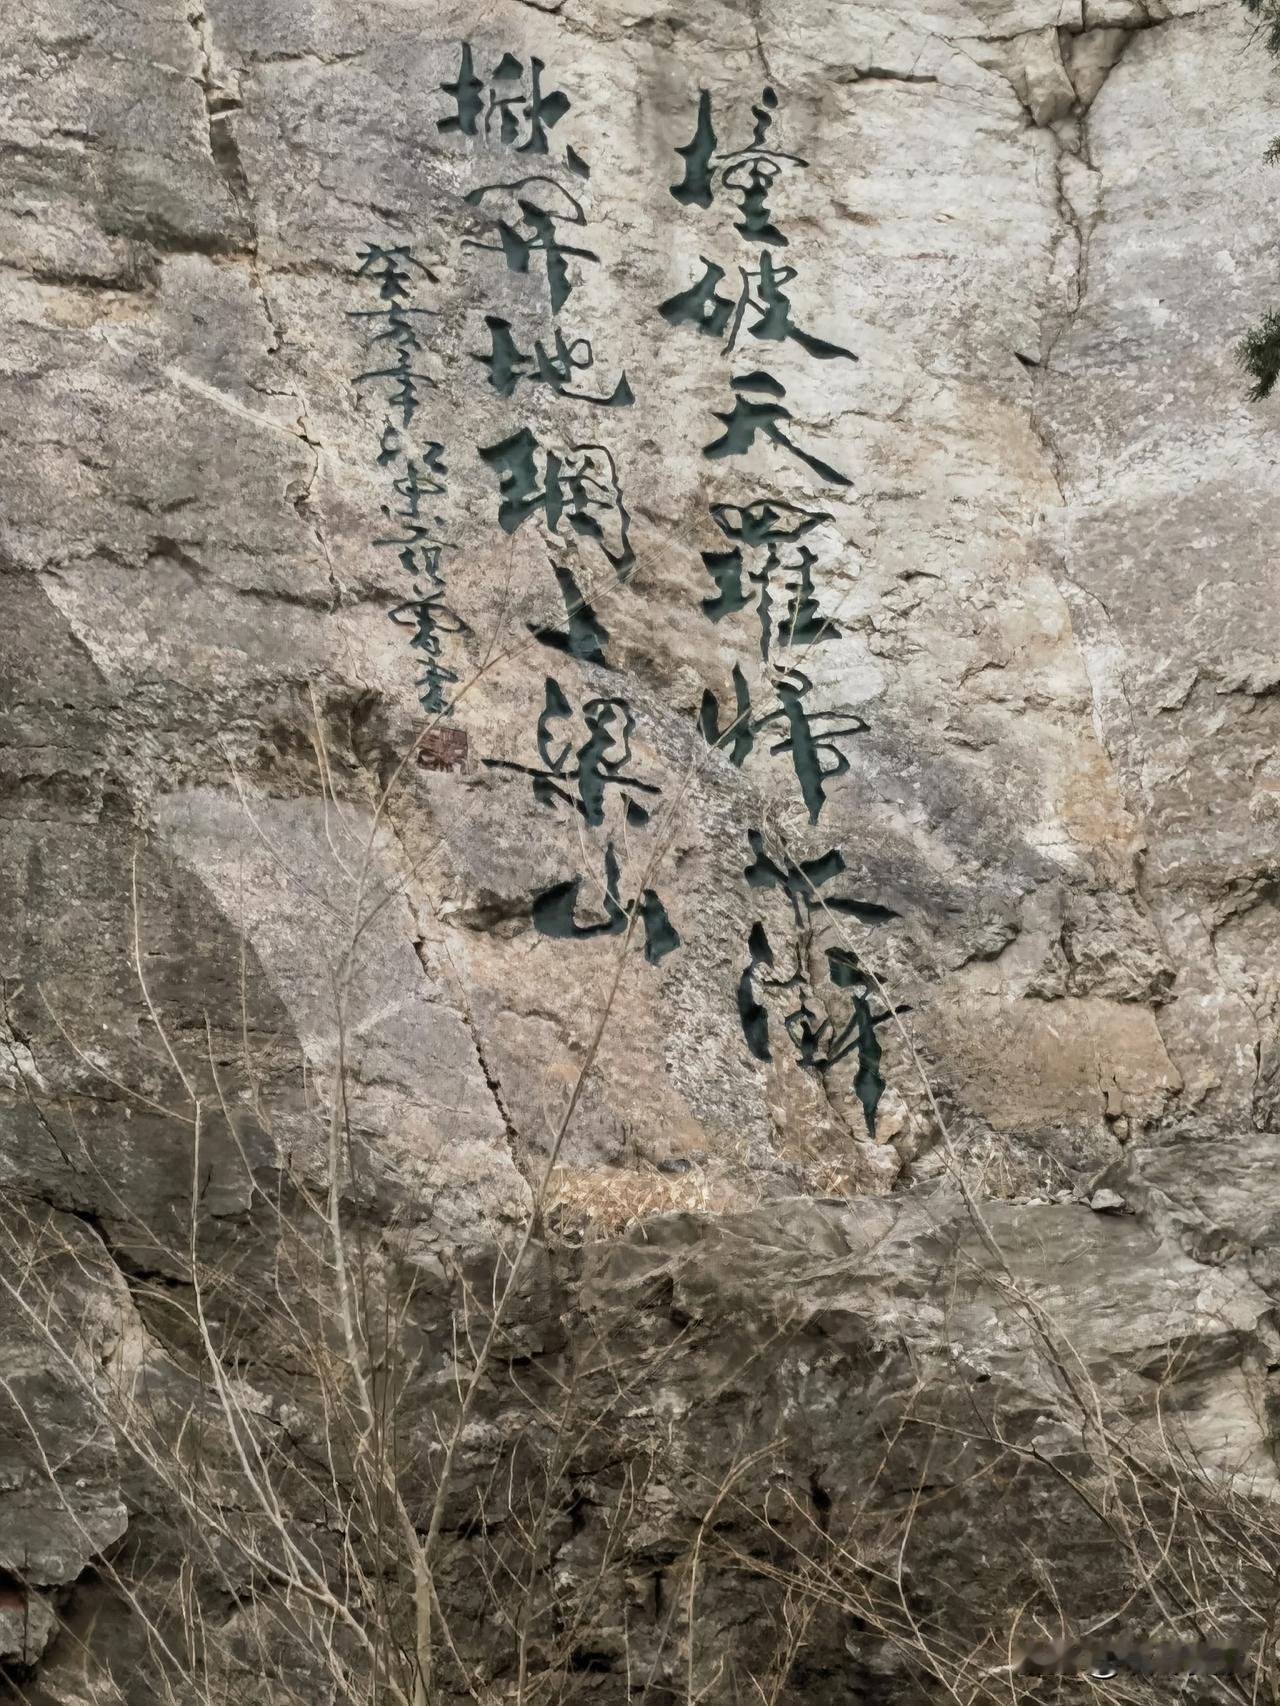 撞破天羅歸水滸
掀開地網上梁山
癸亥年江東范曾書